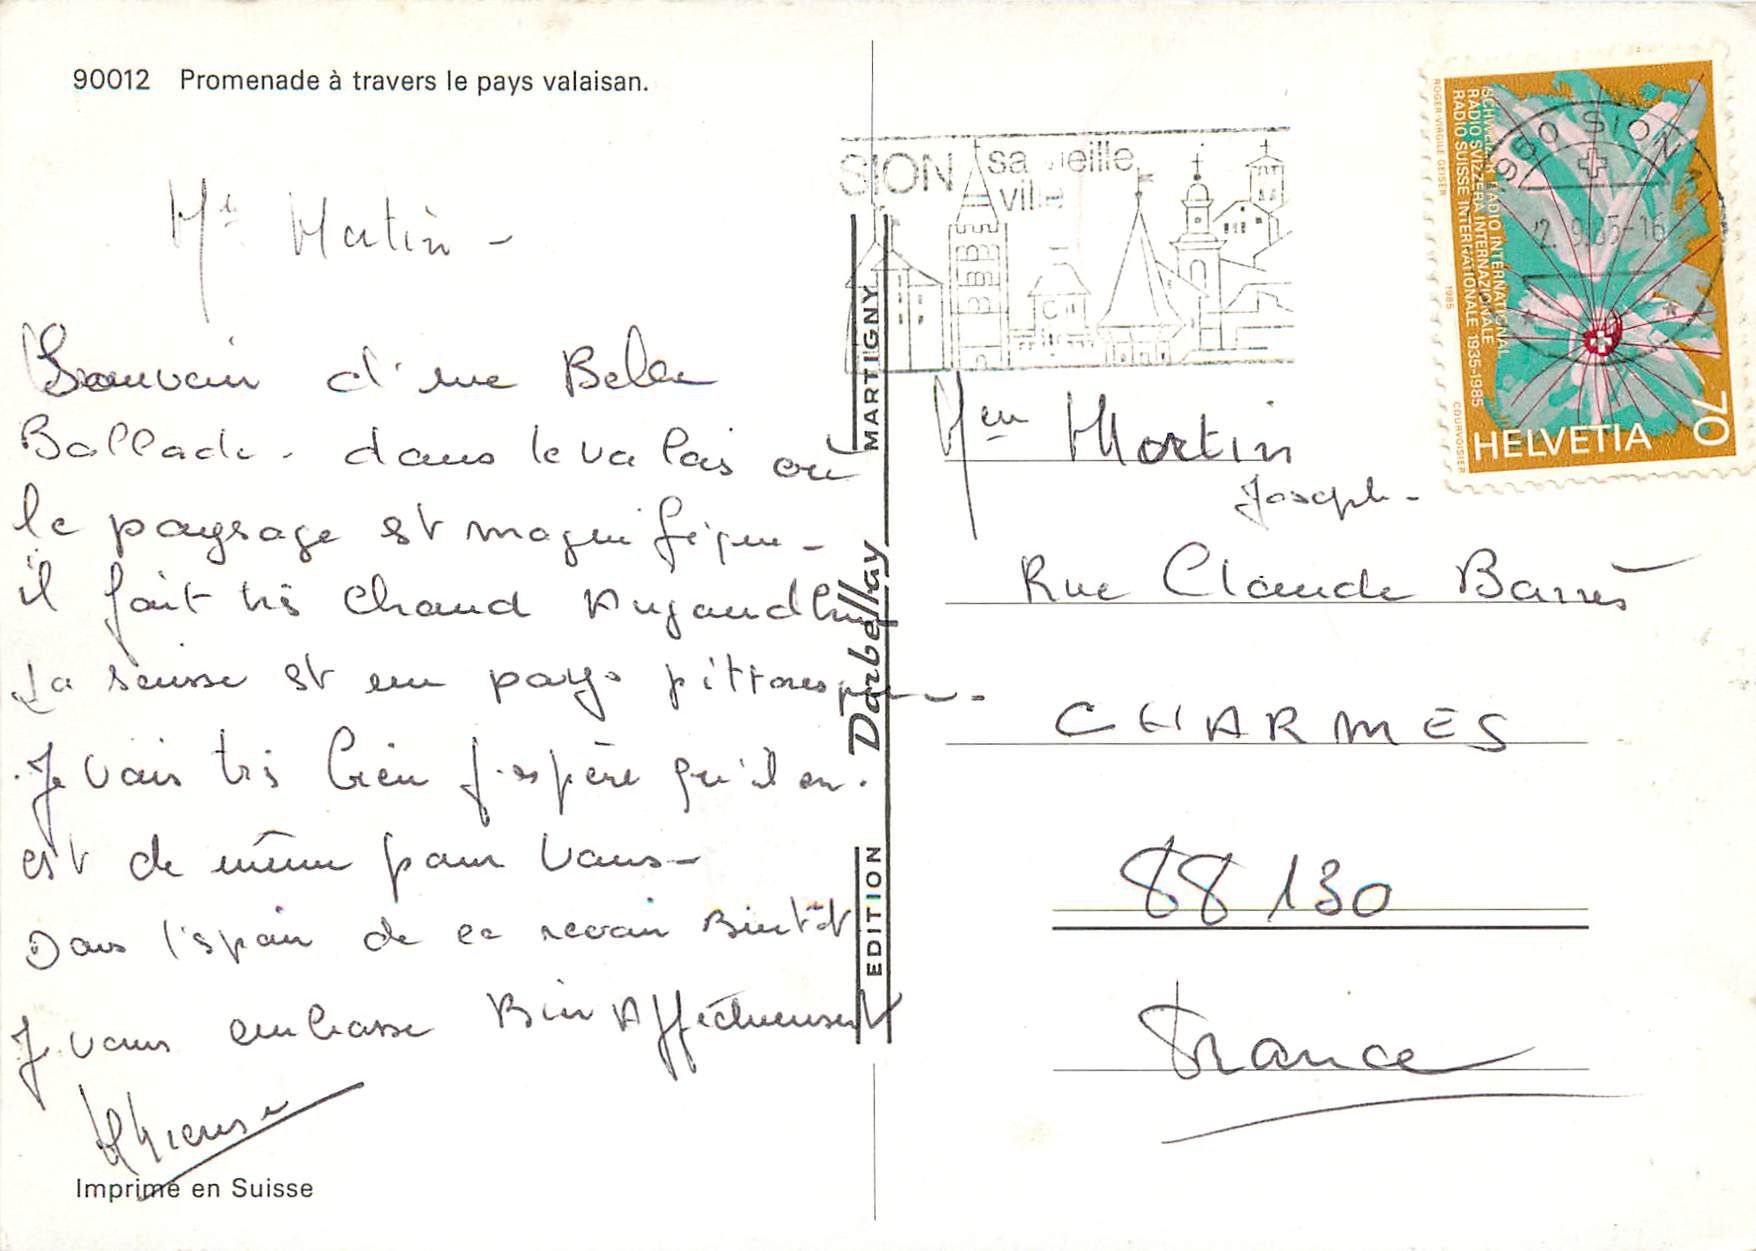 90012 Promenade à travers le pays valaisan.
Martin -
Souvenir d'une Belle
Ballade - dans le valais où
le paysage est magnifique -
il fait très chaud Aujourd'hui
La suisse est un pays pittoresque -
Je vais très bien j'espère qu'il en
est de même pour vous -
Dans l'espoir de ce revoir Bientôt
Je vous embrasse Bien Affectueusement
Imprimé en Suisse
EDITION Darbellay MARTIGNY
SION sa vieille
ville
1950 SION 1
2.9.85-16
SCHWEIZER RADIO INTERNATIONAL
RADIO SVIZZERA INTERNAZIONALE
RADIO SUISSE INTERNATIONALE 1935-1985
ROGER-VIRGILE GEISER
1985
COURVOISIER
HELVETIA 70
Martin
Joseph -
Rue Claude Barrès
CHARMES
88130
France